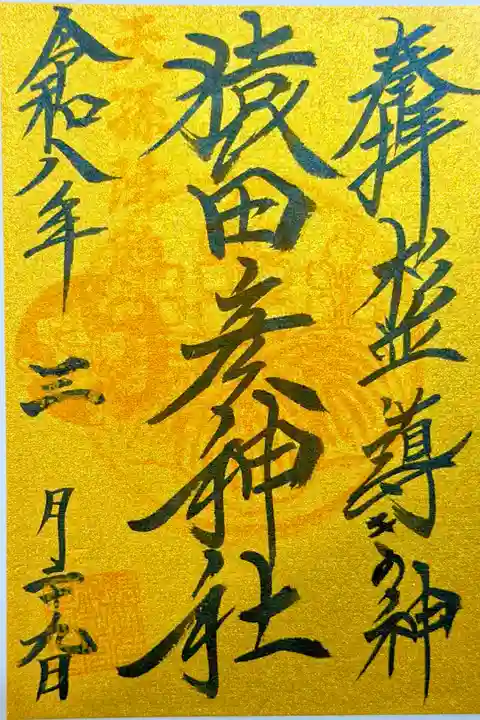 奉拝 杉並 導きの神
猿田彦神社
令和八年 三 月二十九日